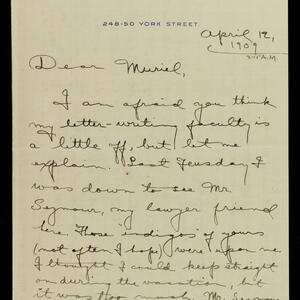 248-50 YORK STREET.
April 12,
1909
Dear Muriel,
I am afraid you think
my letter-writing faculty is
a little off, but let me
explain. Last Tuesday I
was down to see Mr.
Seymour, my lawyer friend
here. Those "indigos" of yours
(not often I hope) were upon me.
I thought I could keep straight
on during the vacation, but
it was too much. Mr.